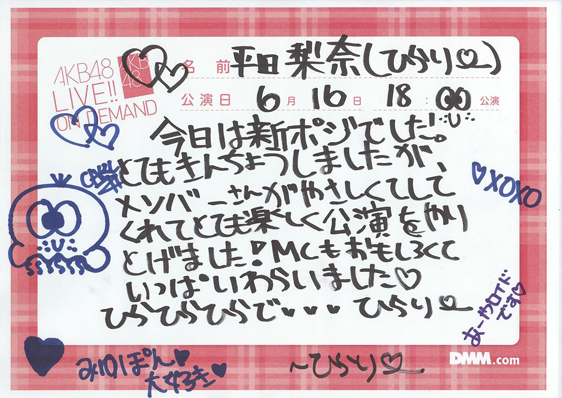 AKB48
LIVE!!
ON DEMAND
AKB48
名前 平田梨奈(ひらり♡)
公演日 6月16日 18:00公演
今日は新ポジでした!。
とてもきんちょうしましたが、
メンバーさんがやさしくてして
くれてとても楽しく公演をやり
とげました!MCもおもしろくて
いっぱいわらいました♡
ひらひらひらで・・・ひらり♡
♡XOXO
あーやロイド
です♡
みゆぽん♥
大好き♥
～ひらり♡
DMM.com